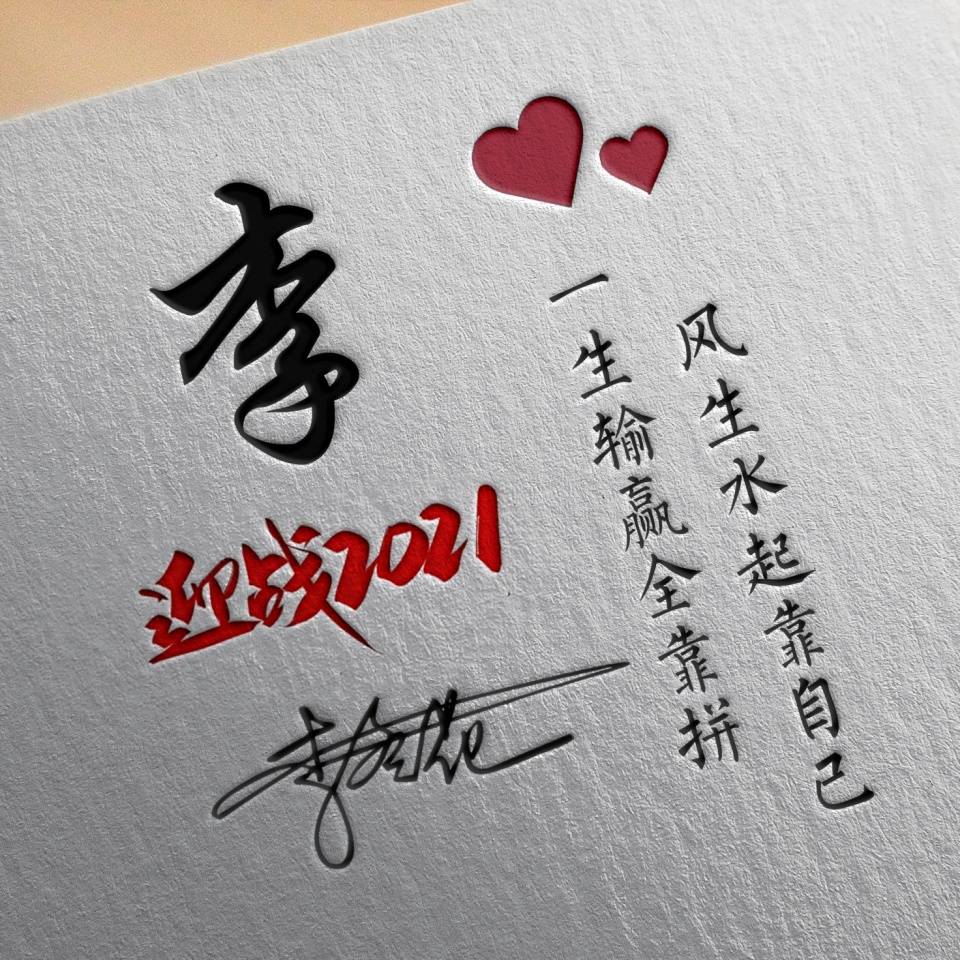 李
迎战2021
风生水起靠自己
一生输赢全靠拼